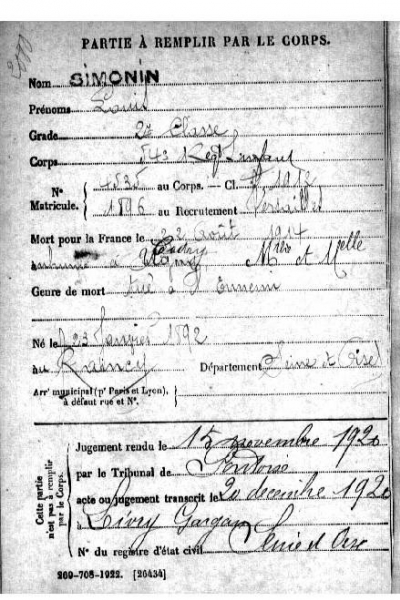 PARTIE À REMPLIR PAR LE CORPS.
Nom SIMONIN
Prénoms Louis
Grade 2e Classe
Corps 54e Regt
N° Matricule. 4535 au Corps. — Cl. 1912
1896 au Recrutement Versailles
Mort pour la France le 22 Août 1914
à Mthe et Mselle
Genre de mort tué à l'Ennemi
Né le 23 Janvier 1892
au Raincy Département Seine et Oise
Arrt municipal (pr Paris et Lyon), à défaut rue et N°.
Cette partie n'est pas à remplir par le Corps.
Jugement rendu le 15 novembre 1920
par le Tribunal de Pontoise
acte ou jugement transcrit le 20 decembre 1920
à Livry Gargan
N° du registre d'état civil Seine et Oise
269-708-1922. [26434]